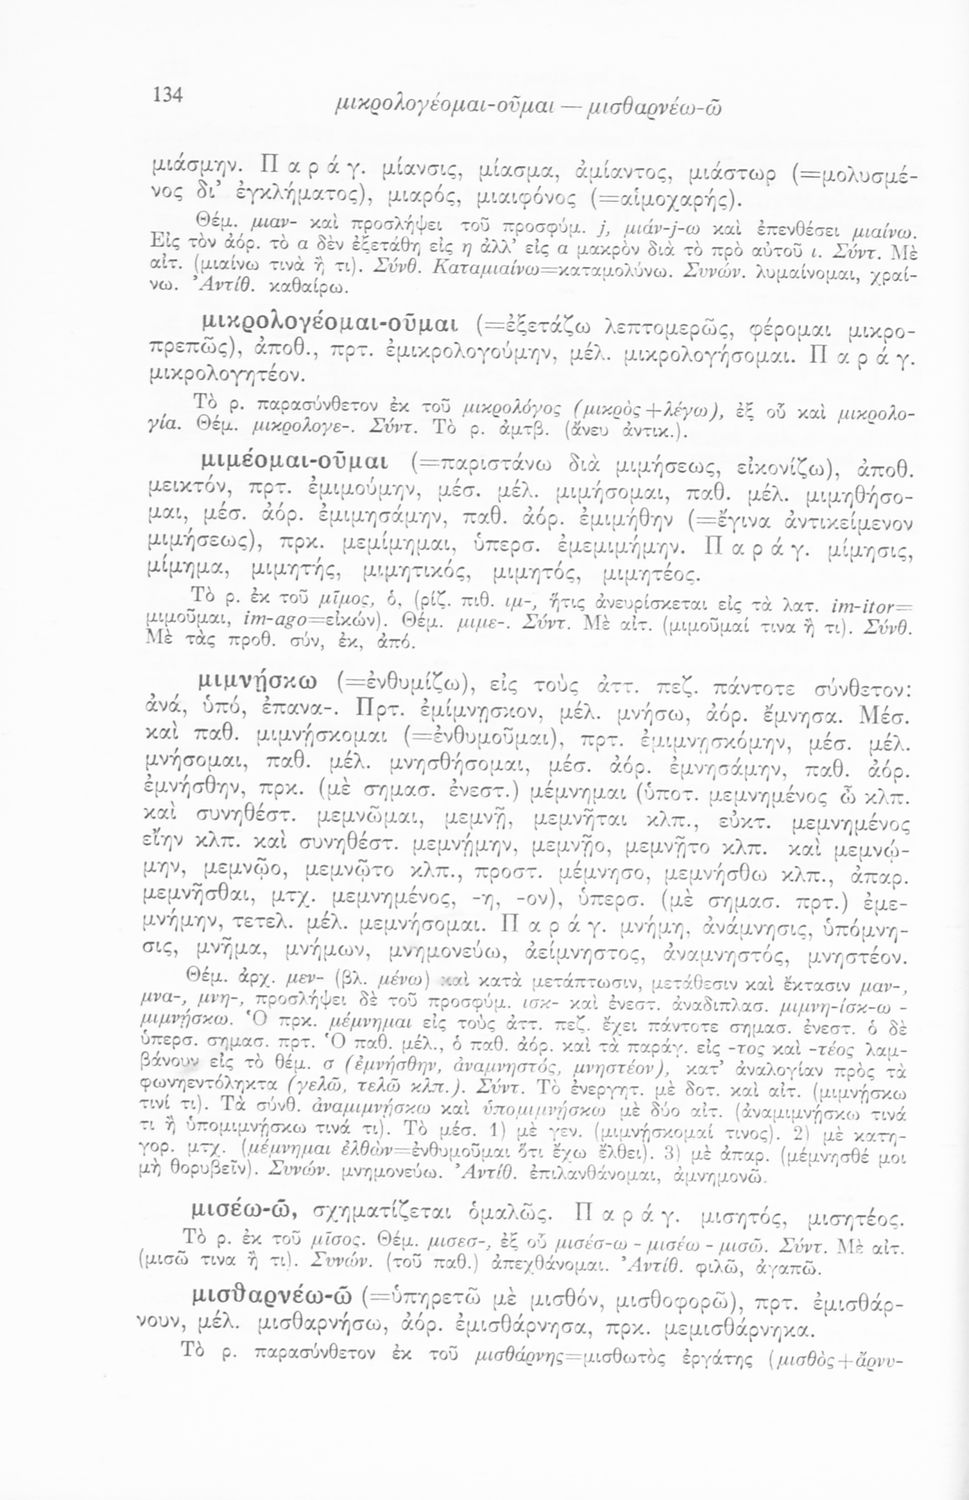 134
μικρολογέομαι-οῦμαι — μισθαρνέω-ῶ
μιάσμην. Π α ρ ά γ. μίανσις, μίασμα, ἀμίαντος, μιάστωρ (=μολυσμέ-
νος δι’ ἐγκλήματος), μιαρός, μιαιφόνος (=αἱμοχαρής).
Θέμ. μιαν- καὶ προσλήψει τοῦ προσφύμ. j, μιάν-j-ω καὶ ἐπενθέσει μιαίνω.
Εἰς τὸν ἀόρ. τὸ α δὲν ἐξετάθη εἰς η ἀλλ’ εἰς α μακρὸν διὰ τὸ πρὸ αὐτοῦ ι. Σύντ. Μὲ
αἰτ. (μιαίνω τινὰ ἤ τι). Σύνθ. Καταμιαίνω=καταμολύνω. Συνών. λυμαίνομαι, χραί-
νω. Ἀντίθ. καθαίρω.
μικρολογέομαι-οῦμαι (=ἐξετάζω λεπτομερῶς, φέρομαι μικρο-
πρεπῶς), ἀποθ., πρτ. ἐμικρολογούμην, μέλ. μικρολογήσομαι. Π α ρ ά γ.
μικρολογητέον.
Τὸ ρ. παρασύνθετον ἐκ τοῦ μικρολόγος (μικρὸς+λέγω), ἐξ οὗ καὶ μικρολο-
γία. Θέμ. μικρολογε-. Σύντ. Τὸ ρ. ἀμτβ. (ἄνευ ἀντικ.).
μιμέομαι-οῦμαι (=παριστάνω διὰ μιμήσεως, εἰκονίζω), ἀποθ.
μεικτόν, πρτ. ἐμιμούμην, μέσ. μέλ. μιμήσομαι, παθ. μέλ. μιμηθήσο-
μαι, μέσ. ἀόρ. ἐμιμησάμην, παθ. ἀόρ. ἐμιμήθην (=ἔγινα ἀντικείμενον
μιμήσεως), πρκ. μεμίμημαι, ὑπερσ. ἐμεμιμήμην. Π α ρ ά γ. μίμησις,
μίμημα, μιμητής, μιμητικός, μιμητός, μιμητέος.
Τὸ ρ. ἐκ τοῦ μῖμος, ὁ, (ρίζ. πιθ. ιμ-, ἥτις ἀνευρίσκεται εἰς τὰ λατ. im-itor=
μιμοῦμαι, im-ago=εἰκών). Θέμ. μιμε-. Σύντ. Μὲ αἰτ. (μιμοῦμαί τινα ἤ τι). Σύνθ.
Μὲ τὰς προθ. σύν, ἐκ, ἀπό.
μιμνῄσκω (=ἐνθυμίζω), εἰς τοὺς ἀττ. πεζ. πάντοτε σύνθετον:
ἀνά, ὑπό, ἐπανα-. Πρτ. ἐμίμνῃσκον, μέλ. μνήσω, ἀόρ. ἔμνησα. Μέσ.
καὶ παθ. μιμνῄσκομαι (=ἐνθυμοῦμαι), πρτ. ἐμιμνῃσκόμην, μέσ. μέλ.
μνήσομαι, παθ. μέλ. μνησθήσομαι, μέσ. ἀόρ. ἐμνησάμην, παθ. ἀόρ.
ἐμνήσθην, πρκ. (μὲ σημασ. ἐνεστ.) μέμνημαι (ὑποτ. μεμνημένος ὦ κλπ.
καὶ συνηθέστ. μεμνῶμαι, μεμνῇ, μεμνῆται κλπ., εὐκτ. μεμνημένος
εἴην κλπ. καὶ συνηθέστ. μεμνῄμην, μεμνῇο, μεμνῇτο κλπ. καὶ μεμνῴ-
μην, μεμνῷο, μεμνῷτο κλπ., προστ. μέμνησο, μεμνήσθω κλπ., ἀπαρ.
μεμνῆσθαι, μτχ. μεμνημένος, -η, -ον), ὑπερσ. (μὲ σημασ. πρτ.) ἐμε-
μνήμην, τετελ. μέλ. μεμνήσομαι. Π α ρ ά γ. μνήμη, ἀνάμνησις, ὑπόμνη-
σις, μνῆμα, μνήμων, μνημονεύω, ἀείμνηστος, ἀναμνηστός, μνηστέον.
Θέμ. ἀρχ. μεν- (βλ. μένω) καὶ κατὰ μετάπτωσιν, μετάθεσιν καὶ ἔκτασιν μαν-,
μνα-, μνη-, προσλήψει δὲ τοῦ προσφύμ. ισκ- καὶ ἐνεστ. ἀναδιπλασ. μιμνη-ίσκ-ω -
μιμνῄσκω. Ὁ πρκ. μέμνημαι εἰς τοὺς ἀττ. πεζ. ἔχει πάντοτε σημασ. ἐνεστ. ὁ δὲ
ὑπερσ. σημασ. πρτ. Ὁ παθ. μέλ., ὁ παθ. ἀόρ. καὶ τὰ παράγ. εἰς -τος καὶ -τέος λαμ-
βάνουν εἰς τὸ θέμ. σ (ἐμνήσθην, ἀναμνηστός, μνηστέον), κατ’ ἀναλογίαν πρὸς τὰ
φωνηεντόληκτα (γελῶ, τελῶ κλπ.). Σύντ. Τὸ ἐνεργητ. μὲ δοτ. καὶ αἰτ. (μιμνῄσκω
τινί τι). Τὰ σύνθ. ἀναμιμνῄσκω καὶ ὑπομιμνῄσκω μὲ δύο αἰτ. (ἀναμιμνῄσκω τινά
τι ἢ ὑπομιμνῄσκω τινά τι). Τὸ μέσ. 1) μὲ γεν. (μιμνῄσκομαί τινος). 2) μὲ κατη-
γορ. μτχ. (μέμνημαι ἐλθὼν=ἐνθυμοῦμαι ὅτι ἔχω ἔλθει). 3) μὲ ἀπαρ. (μέμνησθέ μοι
μὴ θορυβεῖν). Συνών. μνημονεύω. Ἀντίθ. ἐπιλανθάνομαι, ἀμνημονῶ.
μισέω-ῶ, σχηματίζεται ὁμαλῶς. Π α ρ ά γ. μισητός, μισητέος.
Τὸ ρ. ἐκ τοῦ μῖσος. Θέμ. μισεσ-, ἐξ οὗ μισέσ-ω - μισέω - μισῶ. Σύντ. Μὲ αἰτ.
(μισῶ τινα ἤ τι). Συνών. (τοῦ παθ.) ἀπεχθάνομαι. Ἀντίθ. φιλῶ, ἀγαπῶ.
μισθαρνέω-ῶ (=ὑπηρετῶ μὲ μισθόν, μισθοφορῶ), πρτ. ἐμισθάρ-
νουν, μέλ. μισθαρνήσω, ἀόρ. ἐμισθάρνησα, πρκ. μεμισθάρνηκα.
Τὸ ρ. παρασύνθετον ἐκ τοῦ μισθάρνης=μισθωτὸς ἐργάτης (μισθὸς+ἄρνυ-